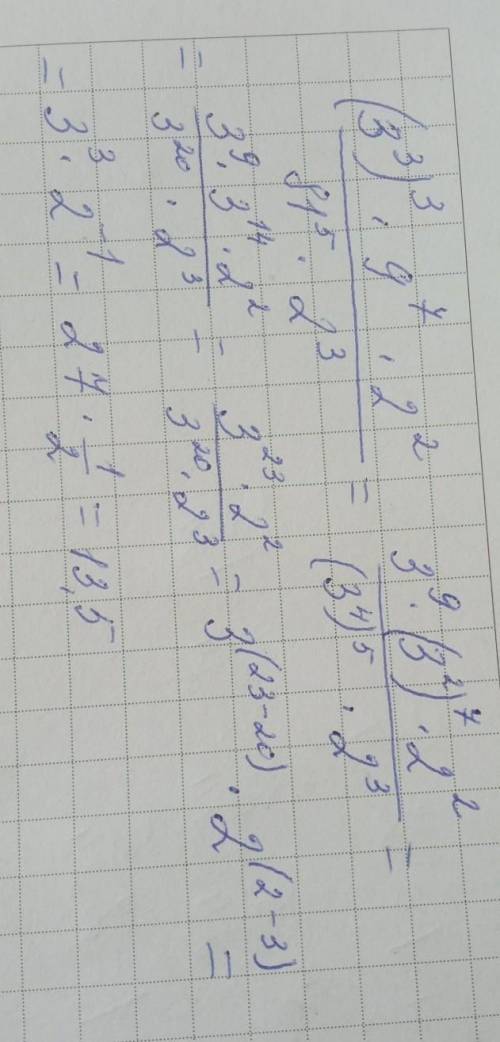 (3³)³ · 9⁷ · 2² / 81⁵ · 2³ = 3⁹ · (3²)⁷ · 2² / (3⁴)⁵ · 2³ =
= 3⁹ · 3¹⁴ · 2² / 3²⁰ · 2³ = 3²³ · 2² / 3²⁰ · 2³ = 3⁽²³⁻²⁰⁾ · 2⁽²⁻³⁾ =
= 3³ · 2⁻¹ = 27 · 1/2 = 13,5